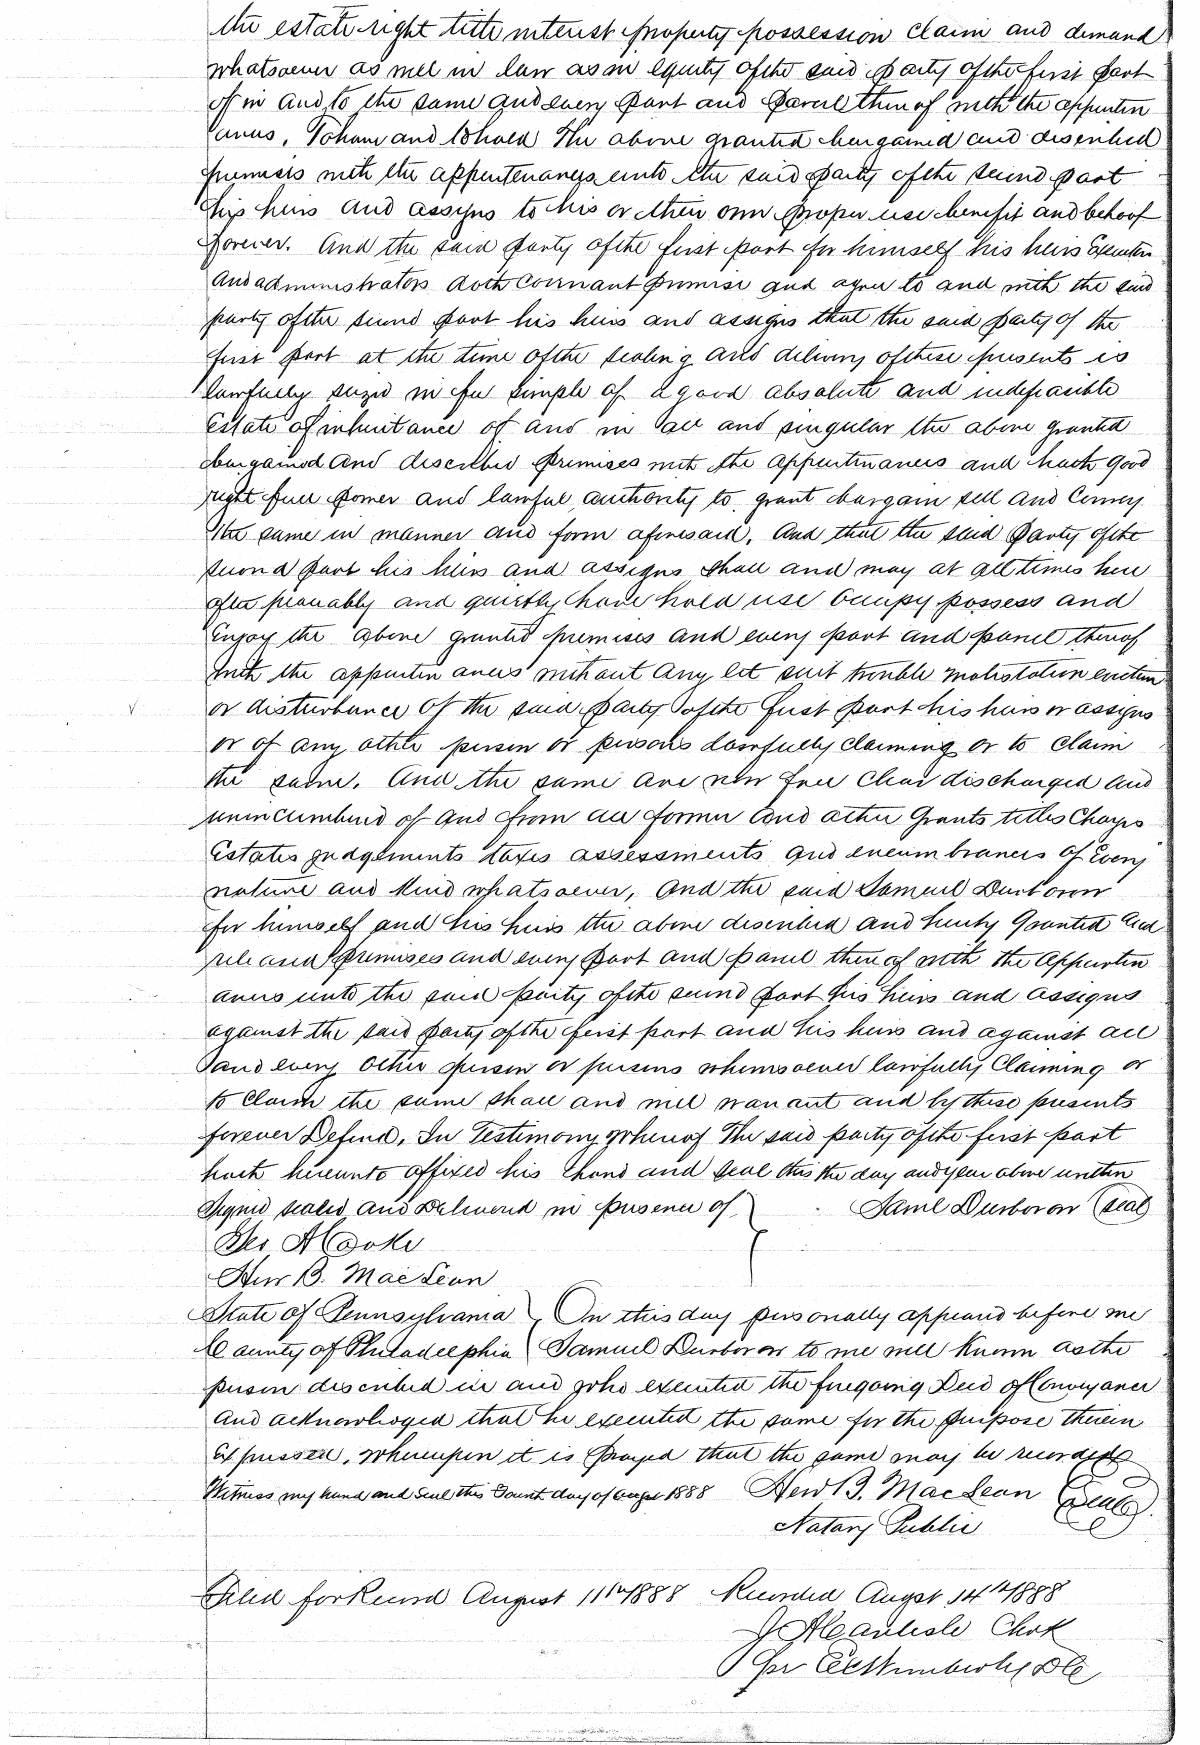 the estate right title interest property possession claim and demand
whatsoever as well in law as in equity of the said party of the first part
of in and to the same and every part and parcel thereof with the appurten
ances, To have and to hold The above granted bargained and described
premises with the appurtenances unto the said party of the second part
his heirs and assigns to his or their own proper use benefit and behoof
forever. And the said party of the first part for himself his heirs Executors
and administrators doth covenant promise and agree to and with the said
party of the second part his heirs and assigns that the said party of the
first part at the time of the sealing and delivery of these presents is
lawfully seized in fee simple of a good absolute and indefeasible
Estate of inheritance of and in all and singular the above granted
bargained and described premises with the appurtenances and hath good
right full power and lawful authority to grant bargain sell and convey
the same in manner and form aforesaid. And that the said party of the
second part his heirs and assigns shall and may at all times here
after peaceably and quietly have hold use occupy possess and
Enjoy the above granted premises and every part and parcel thereof
with the appurtenances without any let suit trouble molestation eviction
or disturbance of the said party of the first part his heirs or assigns
or of any other person or persons lawfully claiming or to claim
the same. And the same are now free clear discharged and
unincumbered of and from all former and other Grants titles Charges
Estates judgements taxes assessments and encumbrances of Every
nature and kind whatsoever, And the said Samuel Durborow
for himself and his heirs the above described and hereby Granted and
released premises and every part and parcel thereof with the appurten
ances unto the said party of the second part his heirs and assigns
against the said party of the first part and his heirs and against all
and every other person or persons whomsoever lawfully Claiming or
to Claim the same shall and will warrant and by these presents
forever Defend. In Testimony Whereof The said party of the first part
hath hereunto affixed his hand and seal this the day and year above written
Signed sealed and Delivered in presence of } Saml Durborow (seal)
Hooke
Hew B. MacLean
State of Pennsylvania } On this day personally appeared before me
County of Philadelphia } Samuel Durborow to me well known as the
person described in and who executed the foregoing Deed of Conveyance
and acknowledged that he executed the same for the purpose therein
expressed, whereupon it is prayed that the same may be recorded
Witness my hand and seal this day of august 1888 Hew B. MacLean (Seal)
Notary Public
Filed for Record August 11th 1888 Recorded Augst 14th 1888
J A Carlisle Clerk
Per DC